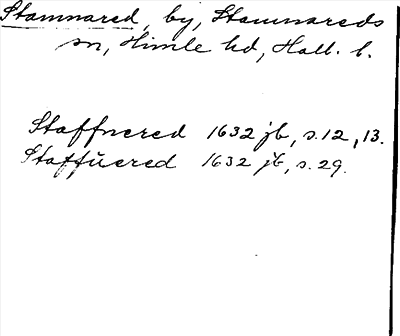 Stamnared, by, Stamnareds
sn, Himle hd, Hall. l.
Staffnered 1632 jb, s. 12, 13.
Staffŭered 1632 jb, s. 29.